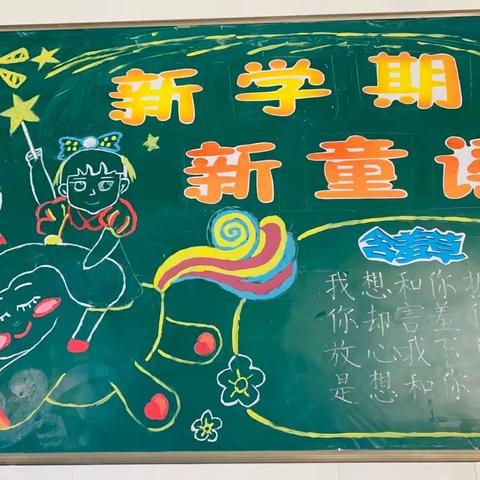 新学期
新童谣
含羞草
我想和你
你却害羞
放心我不
是想和你